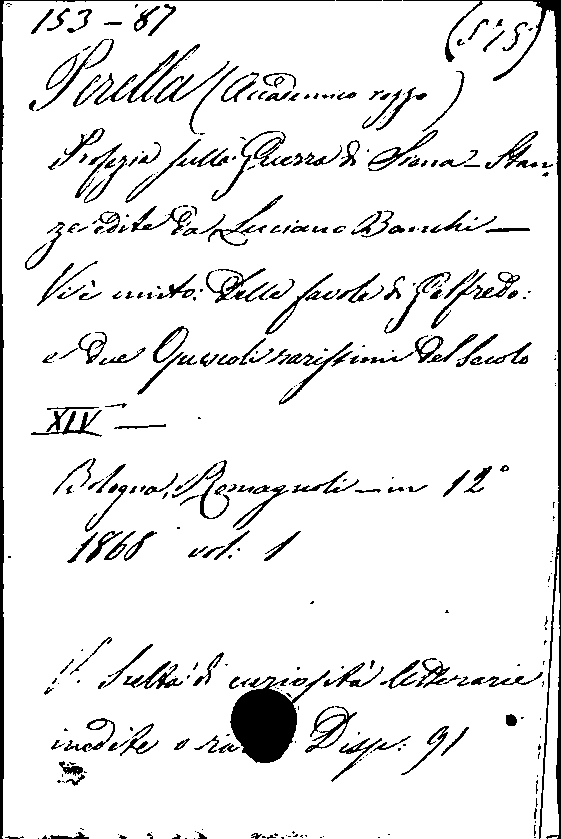 153-'87 (575)
Perella (Accademico rozzo)
Profezia sulla Guerra di Siena - Stan-
ze edite da Luciano Banchi -
Vi è unito: Delle favole di Galfredo:
e due Opuscoli rarissimi del Secolo
XIV -
Bologna, Romagnoli - in 12°
1868 vol: 1
V. Scelta di curiosità letterarie
inedite o Disp: 91